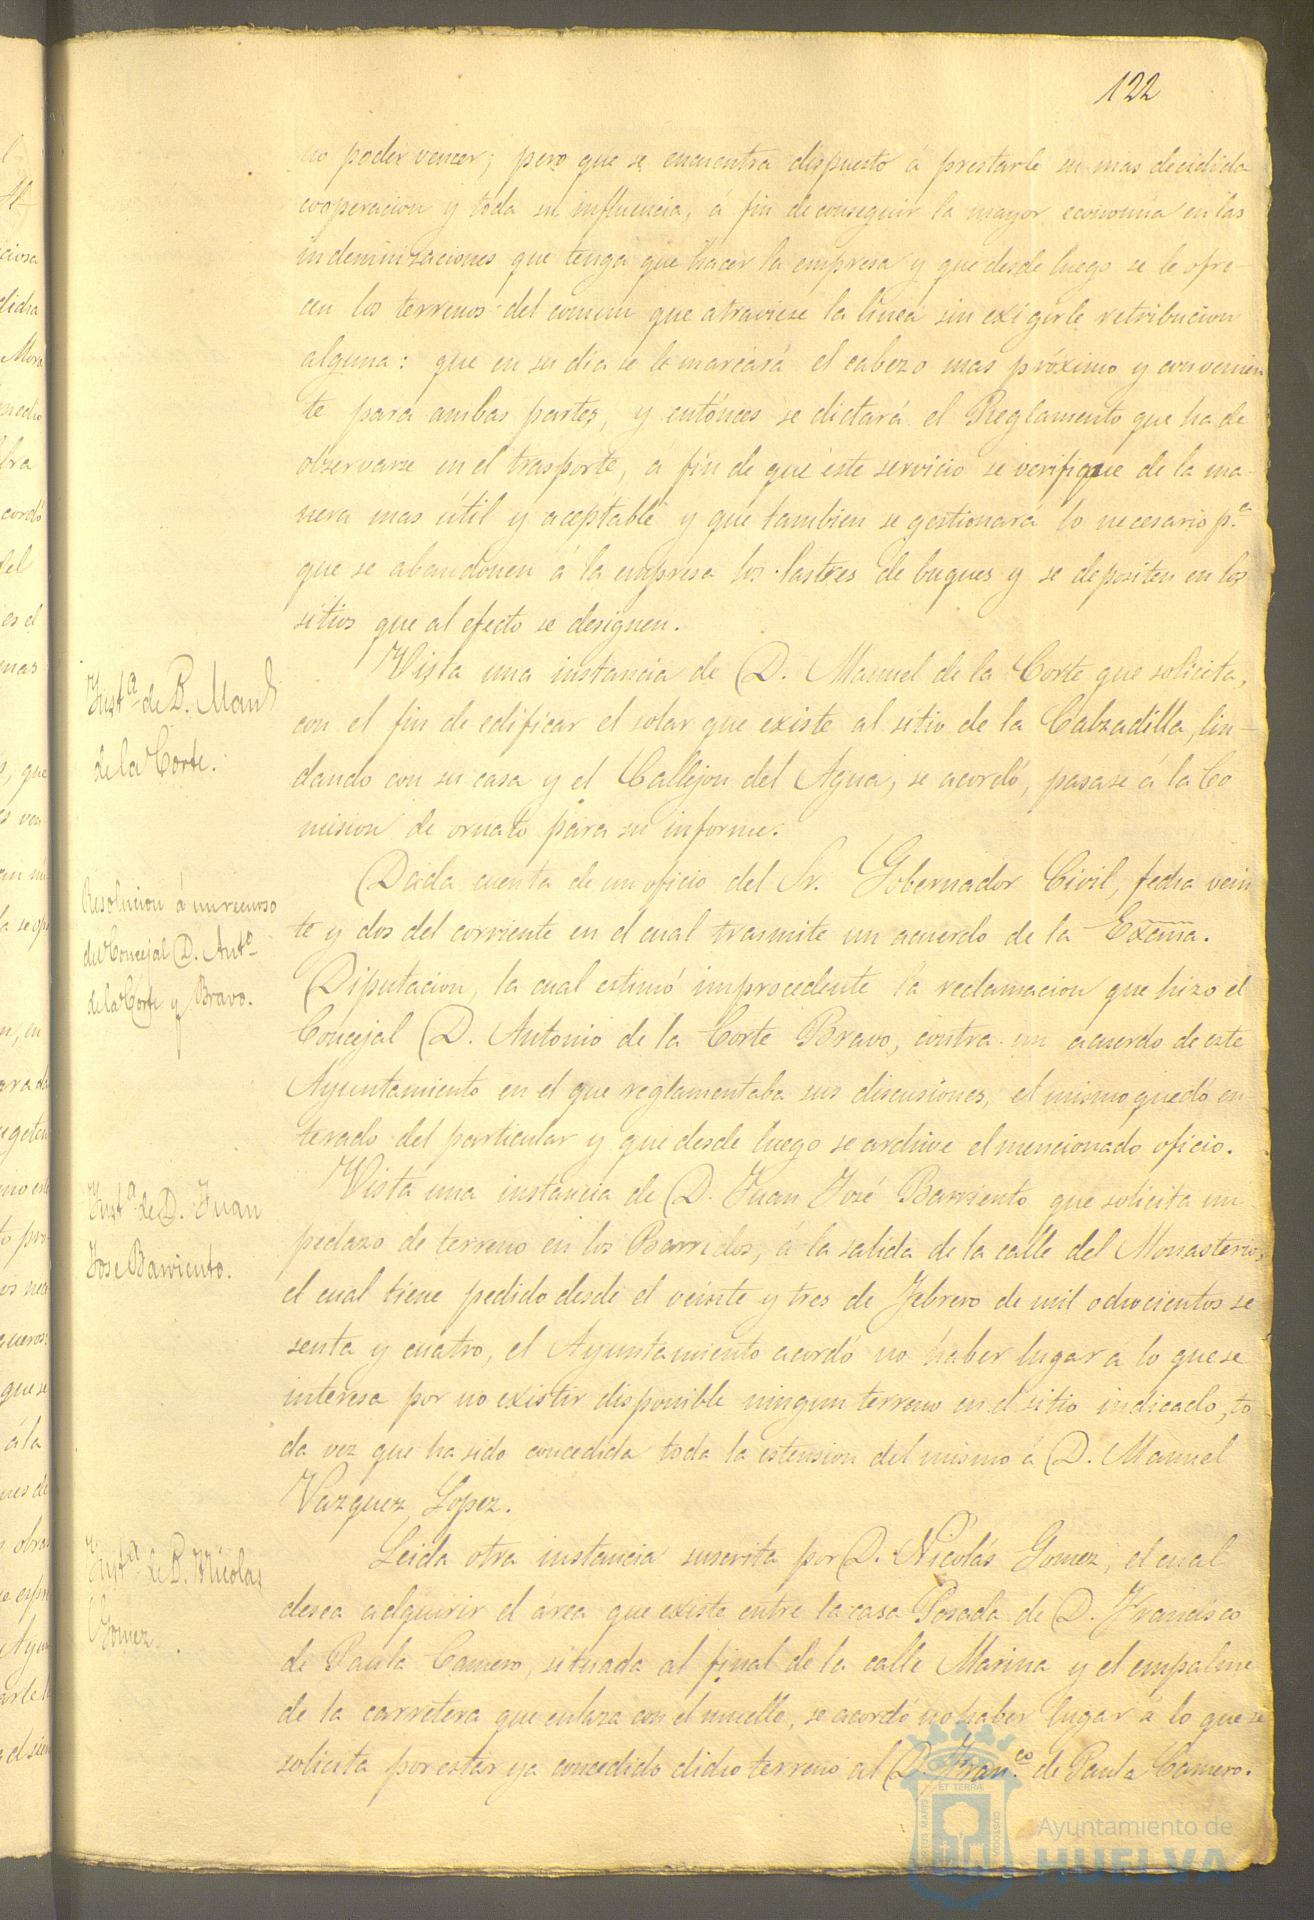 122
no poder vencer; pero que se encuentra dispuesto á prestarle su mas decidida
cooperacion y toda su influencia, á fin de conseguir la mayor economia en las
indemnizaciones que tenga que hacer la empresa y que desde luego se le ofre-
cen los terrenos del comun que atraviese la línea sin exigirle retribucion
alguna: que en su dia se le marcará el cabezo mas próximo y convenien
te para ambas partes, y entónces se dictará el Reglamento que ha de
observarse en el trasporte, á fin de que este servicio se verifique de la ma-
nera mas útil y aceptable y que tambien se gestionará lo necesario p.ª
que se abandonen á la empresa los lastres de buques y se depositen en los
sitios que al efecto se designen.
Inst.ª de D. Man.l
de la Corte.
Vista una instancia de D. Manuel de la Corte que solicita,
con el fin de edificar el solar que existe al sitio de la Calzadilla, lin-
dando con su casa y el Callejon del Agua, se acordó, pasase á la Co
mision de ornato para su informe.
Resolucion á un recurso
del Concejal D. Ant.º
de la Corte y Bravo.
Dada cuenta de un oficio del Sr. Gobernador Civil, fecha vein
te y dos del corriente en el cual trasmite un acuerdo de la Excma.
Diputacion, la cual estimó improcedente la reclamacion que hizo el
Concejal D. Antonio de la Corte Bravo, contra un acuerdo de este
Ayuntamiento en el que reglamentaba sus discusiones, el mismo quedó en
terado del particular y que desde luego se archive el mencionado oficio.
Inst.ª de D. Juan
Jose Barriento.
Vista una instancia de D. Juan José Barriento que solicita un
pedazo de terreno en los Barridos, á la salida de la calle del Monasterio,
el cual tiene pedido desde el veinte y tres de Febrero de mil ochocientos se
senta y cuatro, el Ayuntamiento acordó no haber lugar á lo que se
interesa por no existir disponible ningun terreno en el sitio indicado, to
da vez que ha sido concedida toda la estension del mismo á D. Manuel
Vazquez Lopez.
Inst.ª de D. Nicolas
Gomez.
Leida otra instancia suscrita por D. Nicolás Gomez, el cual
desea adquirir el área que existe entre la casa Posada de D. Francisco
de Paula Camero, situada al final de la calle Marina y el empalme
de la carretera que enlaza con el muelle, se acordó no haber lugar á lo que se
solicita por estar ya concedido dicho terreno al D. Fran.co de Paula Camero.
Ayuntamiento de
HUELVA